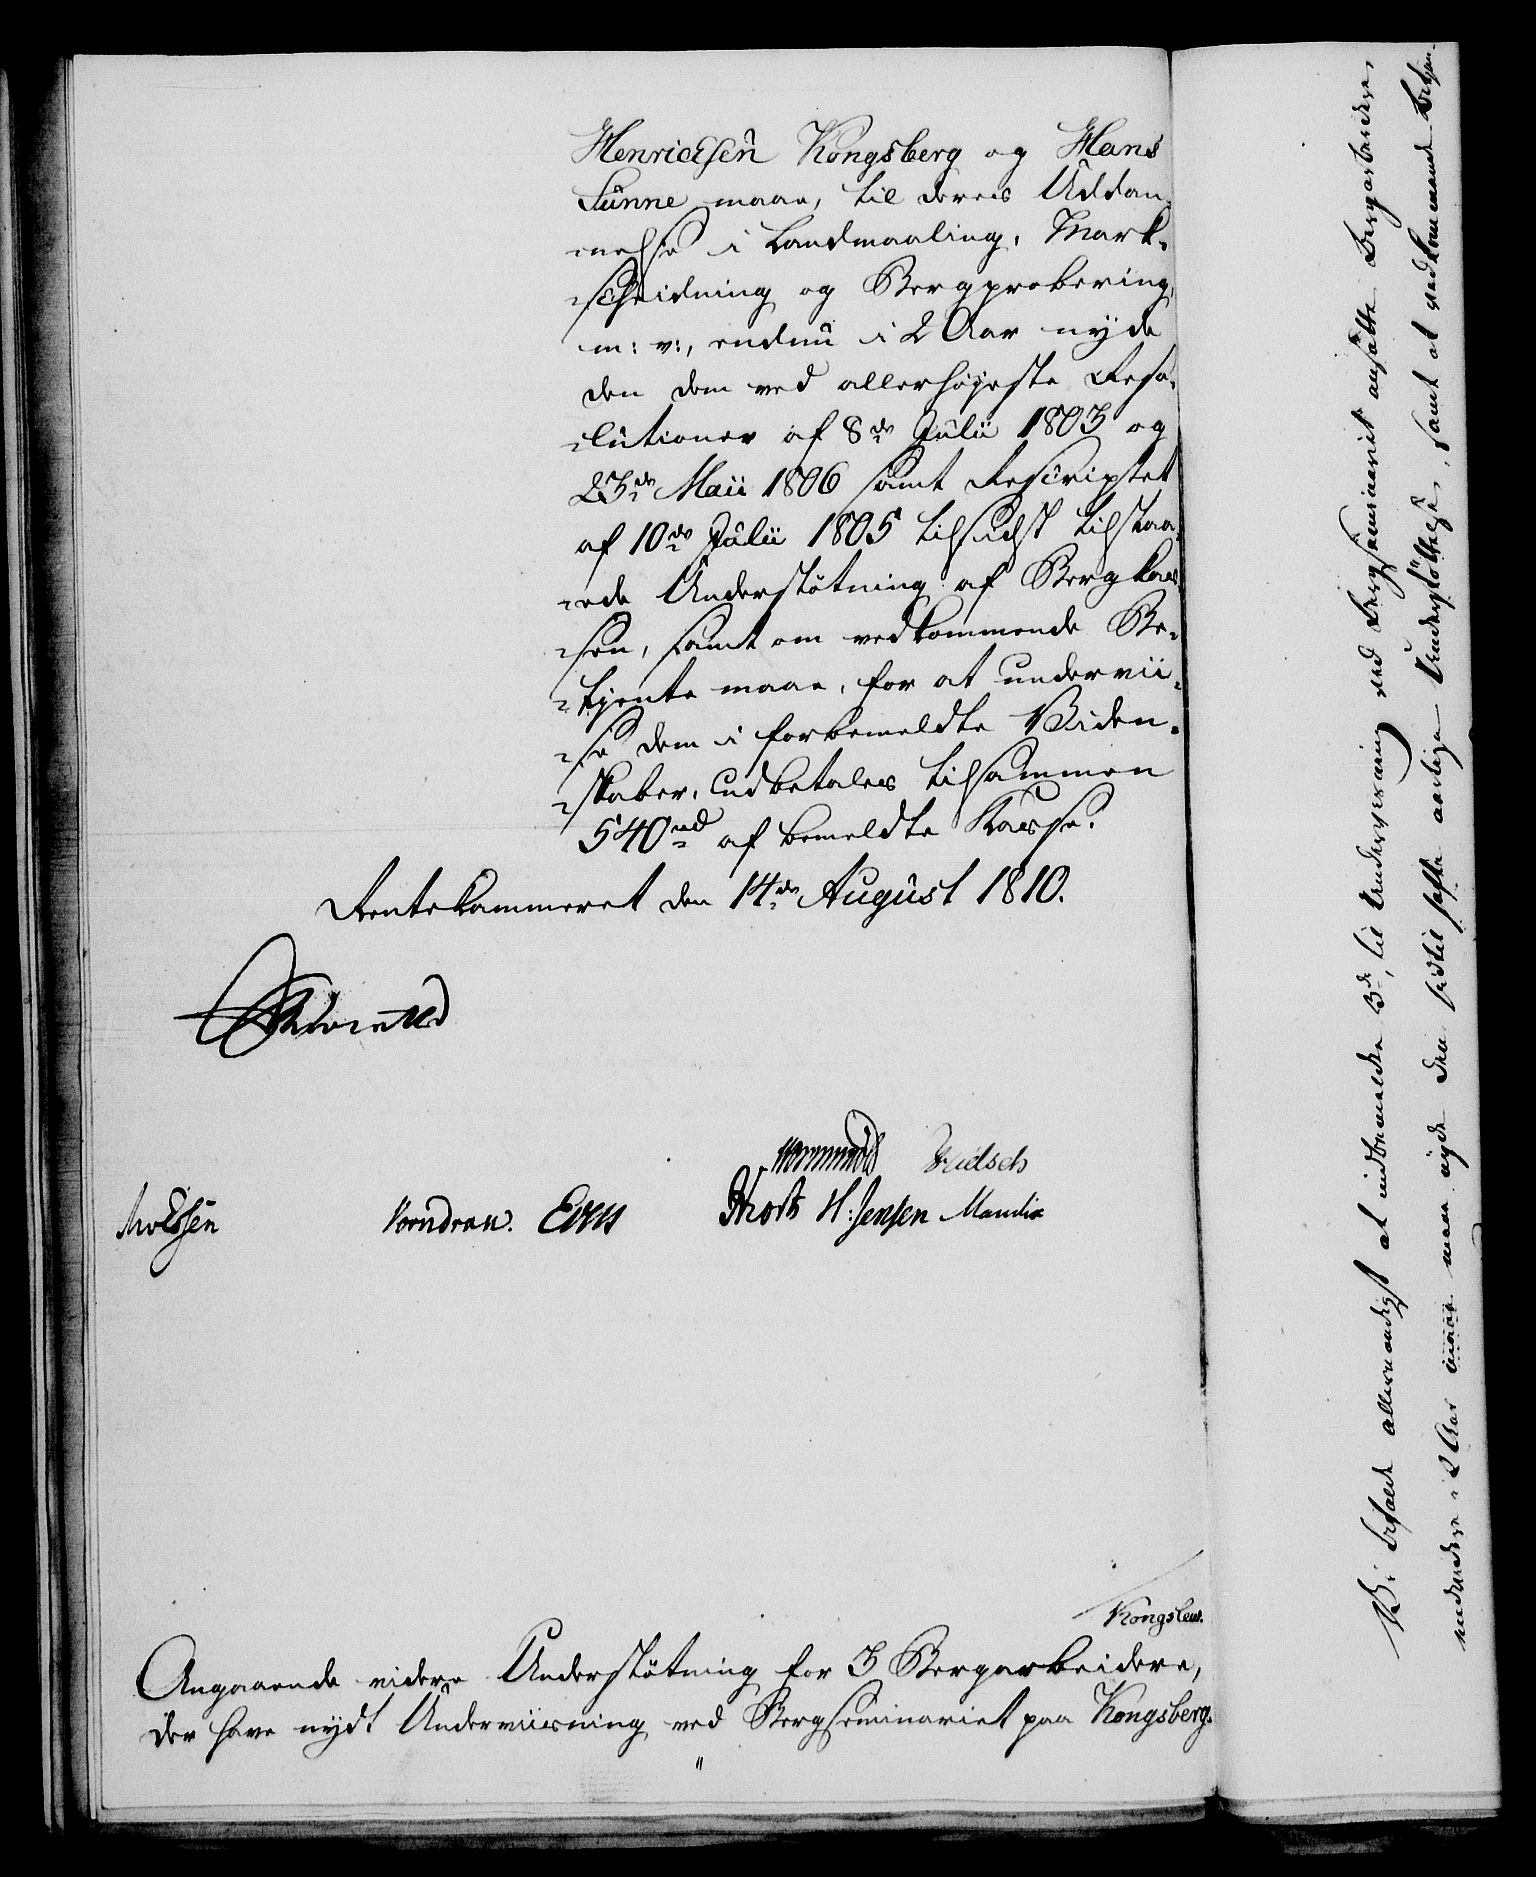 Henrichsen Kongsberg og Hans
Sunne maae, til deres Uddan-
-nelse i Landmaaling, Mark-
-scheidning og Bergprobering,
m: v:, endnu i 2 Aar nyde
den dem ved allerhøjeste Reso-
-lutioner af 8de Julii 1803 og
23de Maii 1806 samt Rescriptet
af 10de Julii 1805 tilsidst tilstaa-
-ede Understøtning af Bergkas-
-sen, samt om vedkommende Be-
-tjente maae, for at undervii-
-se dem i forbemeldte Viden-
-skaber, udbetales tilsammen
540 rd af bemeldte Kasse.
Rentekammeret den 14de August 1810.
Wormskiold Kielsch
Essen Vorndran. Evers Throst H: Jensen Mandix
Kongsberg.
Angaaende videre Understøtning for 3 Bergarbeidere,
der have nydt Underviisning ved Bergseminariet paa Kongsberg.
Vi befale allernaadigst at indbemeldte 3de, til Underviisning ved Bergseminariet ansatte Bergarbeidere,
endvidere i 2 Aar maae nyde den hidtil hafte aarlige Understøttelse, samt at vedkommende Betjen-